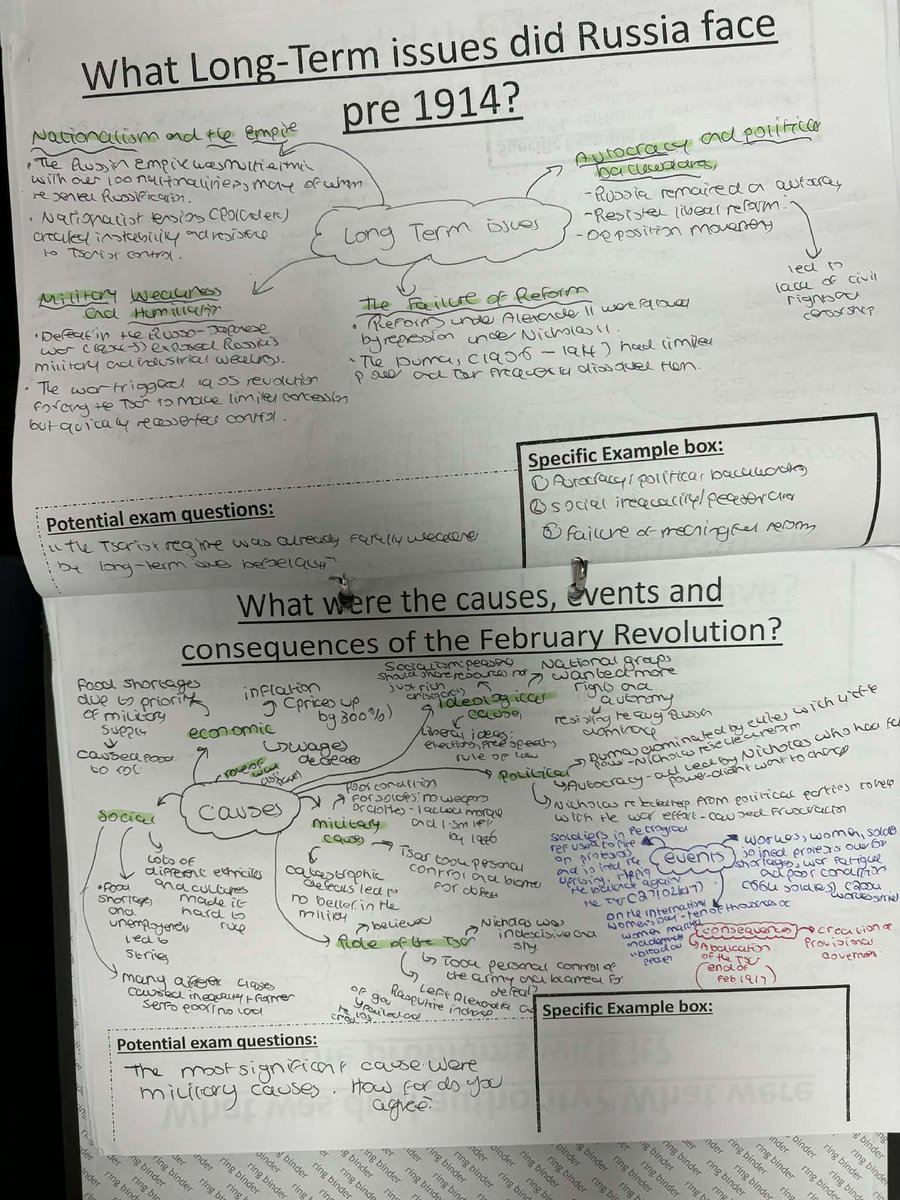 What Long-Term issues did Russia face
pre 1914?
Nationalism and the Empire
• The Russian Empire was multiethnic
with over 100 nationalities, many of whom
resented Russification.
• Nationalist tensions (Poland etc)
created instability and resistance
to Tsarist control.
Autocracy and political
backwardness
- Russia remained an autocracy
- Resisted liberal reform.
- Opposition movements
led to
lack of civil
rights and
censorship
Long Term issues
Military Weakness
and Humiliation
• Defeat in the Russo-Japanese
war (1904-5) exposed Russia's
military and industrial weakness.
• The war triggered 1905 revolution
forcing the Tsar to make limited concession
but quickly reasserted control.
The Failure of Reform
• Reform under Alexander II were followed
by repression under Nicholas II.
• The Duma, (1906 - 1917) had limited
power and Tsar frequently dissolved them.
Specific Example box:
① Autocracy/political backwardness
② social inequality/peasant
③ Failure of meaningful reform
Potential exam questions:
"The Tsarist regime was already fatally weakened
by long-term issues before
What were the causes, events and
consequences of the February Revolution?
causes
Food shortages
due to priority
of military
supply
caused food
to rot
economic
inflation
(prices up
by 300%)
wages
decreased
ideological
cause
Socialism peasants
should share resources not
just rich
National groups
wanted more
rights and
autonomy
resisting
Liberal ideas:
elections, free speech,
rule of law
Political
Duma dominated by elites with little
power - Nicholas
Autocracy - all led by Nicholas who had full
power - didn't want to change
Nicholas rejected help from political parties to help
with the war effort - caused frustration
social
Food
shortages
and
unemployment
led to
strikes
Lots of
different ethnicities
and cultures
made it
hard to
rule
Many classes
caused inequality + former
serfs poor/no land
military
cause
Poor condition
for soldiers no weapons
or clothes - lacked morale
and 1.5m left
by 1916
catastrophic
defeats led to
no belief in the
military
Tsar took personal
control and blamed
for defeat
Role of the Tsar
believed
Nicholas was
indecisive and
shy
Took personal control of
the army and blamed for
defeats
Left Alexandra and
Rasputin in charge
of gov
events
soldiers in Petrograd
refused to fire
on protests
and joined the
uprising, tipping
the balance against
the Tsar (27/02/17)
workers, women, soldiers
joined protests over food
shortages, war fatigue
and poor condition
(66k soldiers) (200k
workers strike)
on the International
Women's Day - tens of thousands of
women marched
"bread and
peace"
consequence
creation of
Provisional
Government
Abdication
of the Tsar
(end of
Feb 1917)
Potential exam questions:
The most significant cause were
military causes. How far do you
agree?
Specific Example box:
ring binder